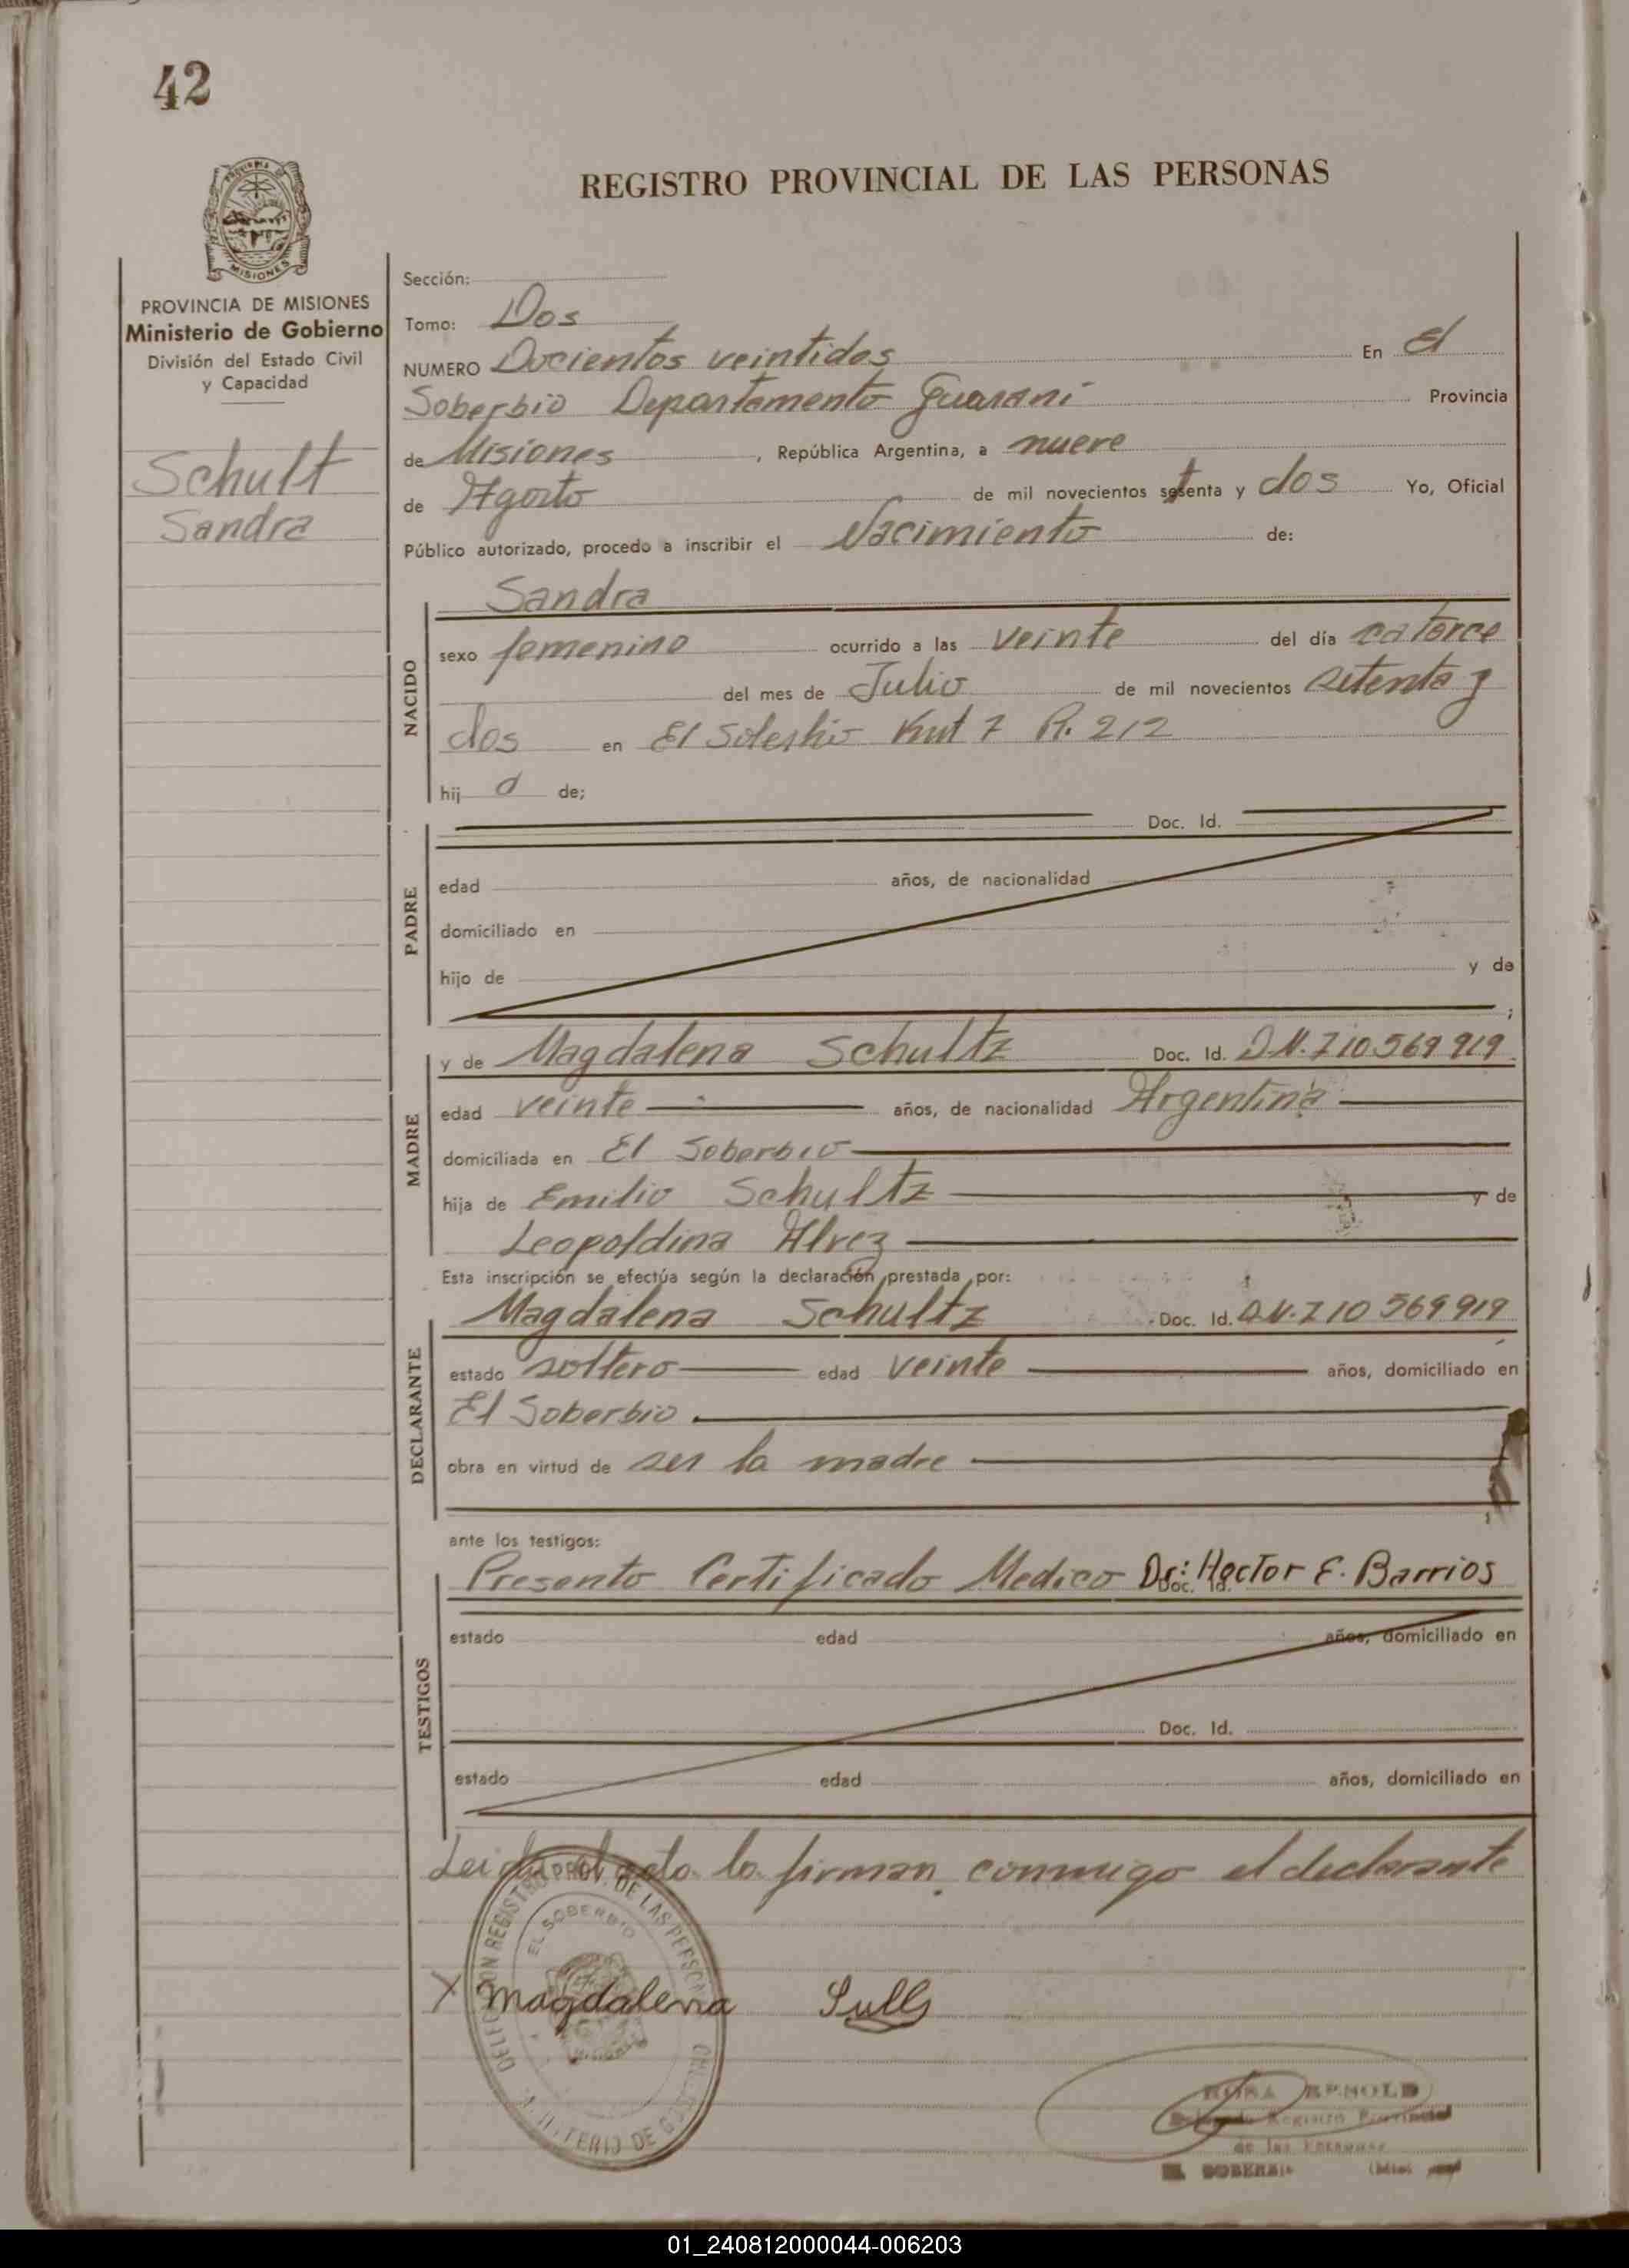 42
REGISTRO PROVINCIAL DE LAS PERSONAS
MISIONES
PROVINCIA DE MISIONES
Ministerio de Gobierno
División del Estado Civil
y Capacidad
Schult
Sandra
Sección:
Tomo: Dos
NUMERO Docientos veintidos En El
Soberbio Departamento Guarani Provincia
de Misiones, República Argentina, a nueve
de Agosto de mil novecientos setenta y dos Yo, Oficial
Público autorizado, procedo a inscribir el Nacimiento de:
NACIDO
Sandra
sexo femenino ocurrido a las veinte del día catorce
del mes de Julio de mil novecientos setenta y
dos en El Soberbio Kmt 7 R. 212
hij a de;
PADRE
Doc. Id.
edad años, de nacionalidad
domiciliado en
hijo de y de
;
MADRE
y de Magdalena Schultz Doc. Id. D.N.I 10 569 919
edad veinte años, de nacionalidad Argentina
domiciliada en El Soberbio
hija de Emilio Schultz y de
Leopoldina Alvez
Esta inscripción se efectúa según la declaración prestada por:
DECLARANTE
Magdalena Schultz Doc. Id. D.N.I 10 569 919
estado soltero edad veinte años, domiciliado en
El Soberbio
obra en virtud de ser la madre
ante los testigos:
TESTIGOS
Presento Certificado Medico Dr: Hector E. Barrios
Doc. Id.
estado edad años, domiciliado en
Doc. Id.
estado edad años, domiciliado en
Leida el acta la firman conmigo el declarante
DELEGACION REGISTRO PROV. DE LAS PERSONAS
EL SOBERBIO
MINISTERIO DE
X Magdalena Sulls
ROSA
Registro Provincial
de las Personas
EL SOBERBIO
01_240812000044-006203